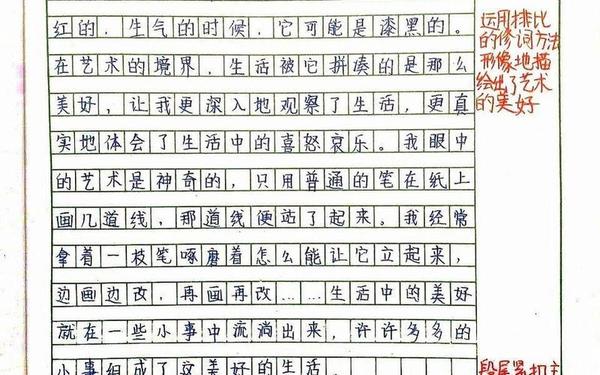 红的，生气的时候，它可能是漆黑的。
在艺术的境界，生活被它拼凑的是那么
美好，让我更深入地观察了生活，更真
实地体会了生活中的喜怒哀乐。我眼中
的艺术是神奇的，只用普通的笔在纸上
画几道线，那道线便站了起来。我经常
拿着一枝笔啄磨着怎么能让它立起来，
边画边改，再画再改……生活中的美好
就在一些小事中流淌出来，许许多多的
小事组成了这美好的生活。
运用排比
的修词方法
形像地描
绘出了艺术
的美好
段尾紧扣主